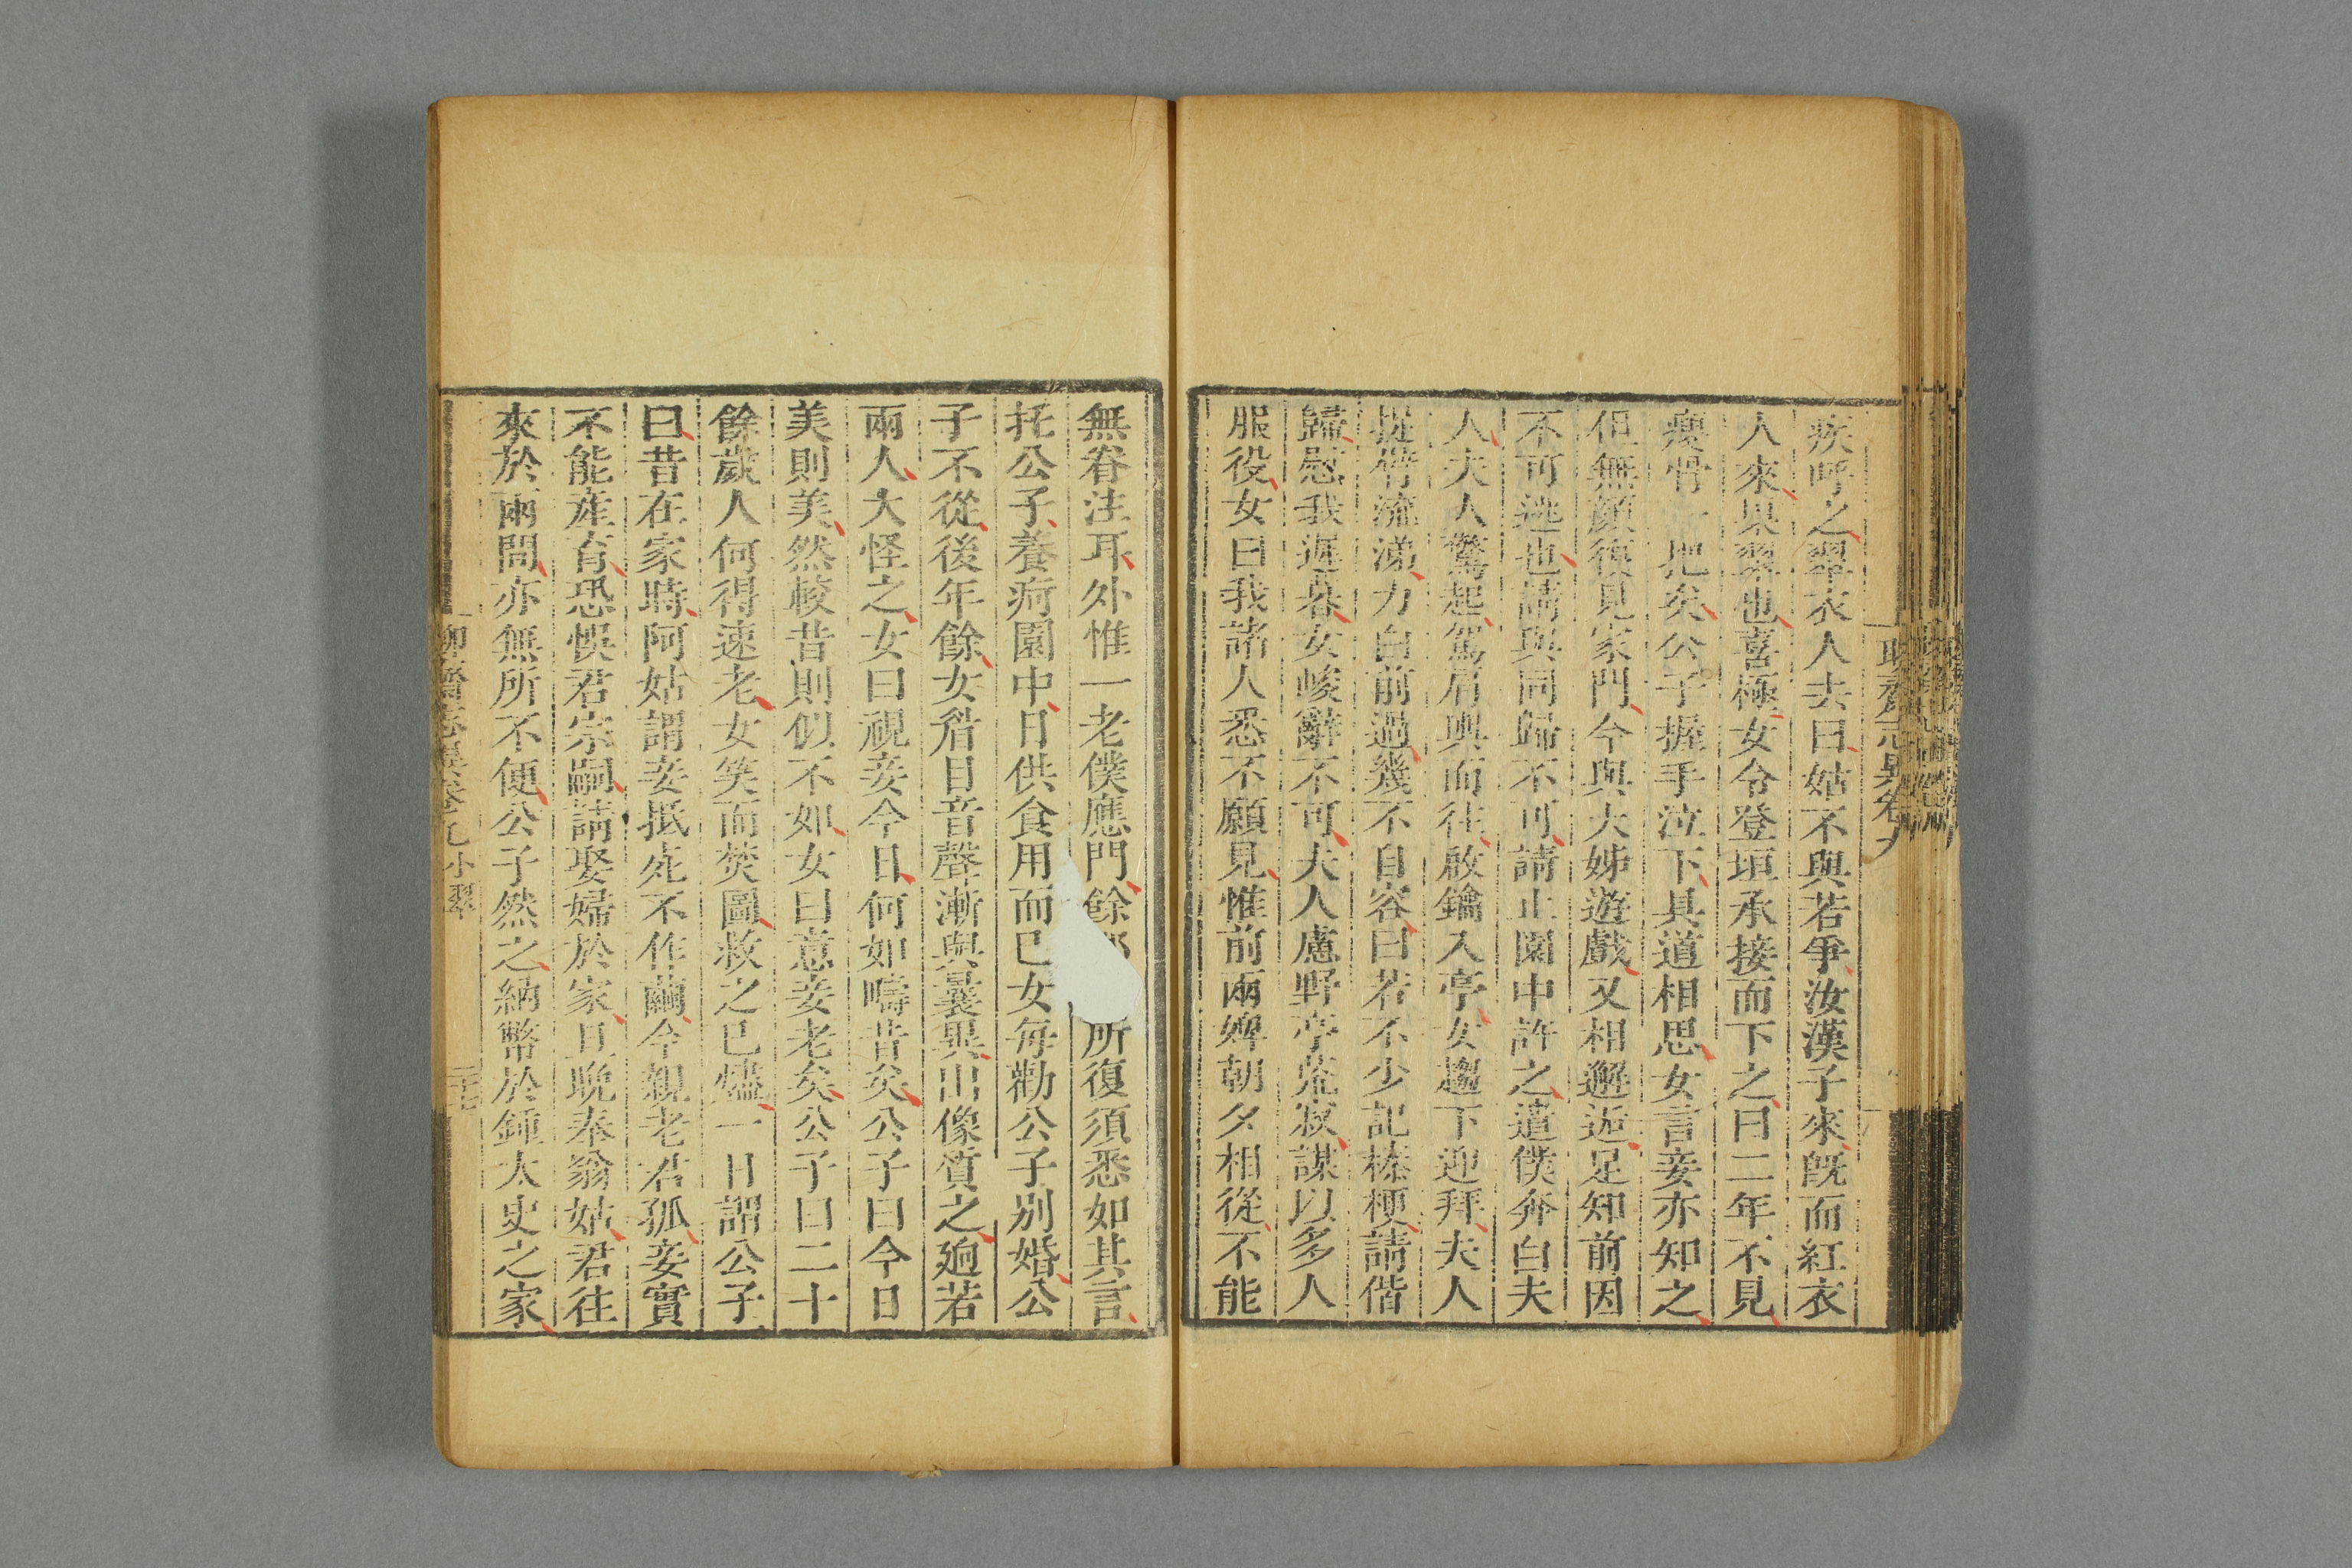 疾呼之翠衣人去曰姑不與若爭汝漢子來既而紅衣
人來果翠也喜極女令登垣承接而下之曰二年不見
瘦骨一把矣公子握手泣下具道相思女言妾亦知之
但無顏復見家門今與大姊遊戲又相邂逅足知前因
不可逃也請與同歸不可請止園中許之遣僕奔白夫
人夫人驚起駕肩輿而往啟鑰入亭女趨下迎拜夫人
捉臂流涕力白前過幾不自容曰若不少記榛梗請偕
歸慰我遲暮女峻辭不可夫人慮野亭荒寂謀以多人
服役女曰我諸人悉不願見惟前兩婢朝夕相從不能
無眷注耳外惟一老僕應門餘所復須悉如其言
托公子養疴園中日供食用而已女每勸公子別婚公
子不從後年餘女眉目音聲漸與曩異出像質之迥若
兩人大怪之女曰視妾今日何如疇昔矣公子曰今日
美則美然較昔則似不如女曰意妾老矣公子曰二十
餘歲人何得速老女笑而焚圖救之已燼一日謂公子
曰昔在家時阿姑謂妾抵死不作繭今親老君孤妾實
不能產育恐悞君宗嗣請娶婦於家旦晚奉翁姑君往
來於兩間亦無所不便公子然之納幣於鍾太史之家
小翠